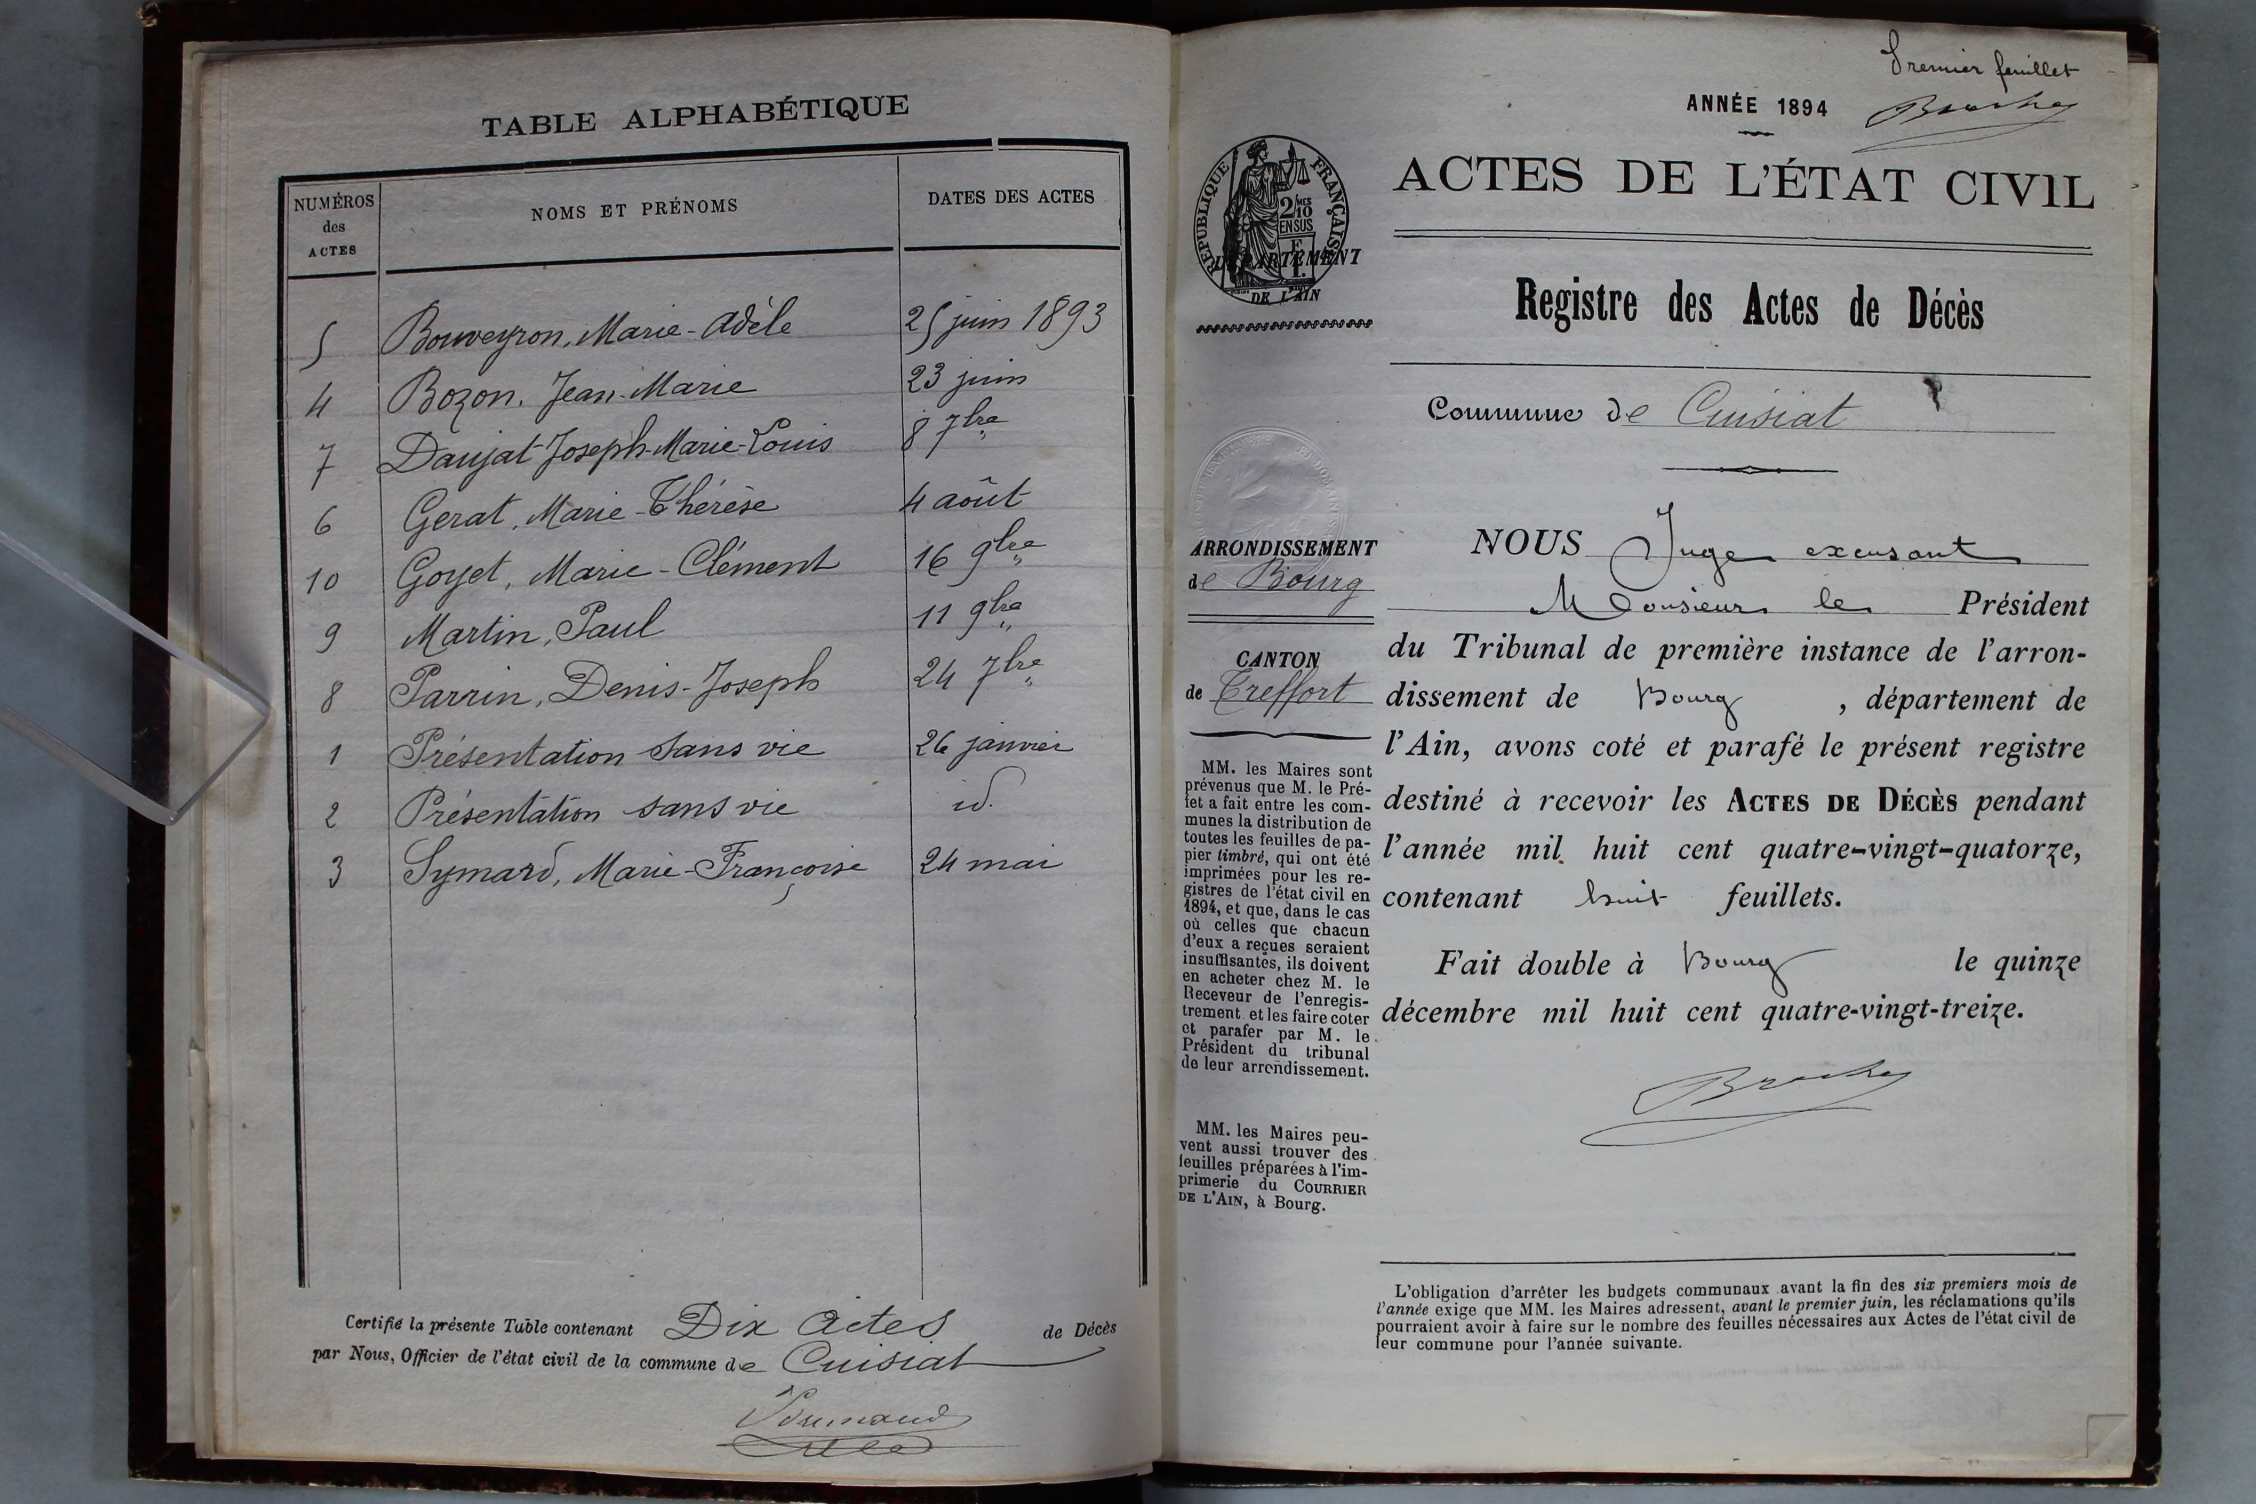 TABLE ALPHABÉTIQUE
NUMÉROS des ACTES
NOMS ET PRÉNOMS
DATES DES ACTES
5 Bouveyron, Marie-Adèle 25 juin 1893
4 Bozon, Jean-Marie 23 juin
7 Daujat Joseph-Marie-Louis 8 7bre
6 Gerat, Marie-Thérèse 4 août
10 Goyet, Marie-Clément 16 9bre
9 Martin, Paul 11 9bre
8 Parrin, Denis-Joseph 24 7bre
1 Présentation sans vie 26 janvier
2 Présentation sans vie id.
3 Symard, Marie-Françoise 24 mai
Certifié la présente Table contenant Dix Actes de Décès
par Nous, Officier de l'état civil de la commune de Cuisiat
Premier feuillet
ANNÉE 1894
ACTES DE L'ÉTAT CIVIL
RÉPUBLIQUE FRANÇAISE
2/10 MES
EN SUS
DÉPARTEMENT
DE L'AIN
Registre des Actes de Décès
Commune de Cuisiat
ARRONDISSEMENT
de Bourg
CANTON
de Treffort
MM. les Maires sont
prévenus que M. le Pré-
fet a fait entre les com-
munes la distribution de
toutes les feuilles de pa-
pier timbré, qui ont été
imprimées pour les re-
gistres de l'état civil en
1894, et que, dans le cas
où celles que chacun
d'eux a reçues seraient
insuffisantes, ils doivent
en acheter chez M. le
Receveur de l'enregis-
trement et les faire coter
et parafer par M. le
Président du tribunal
de leur arrondissement.
MM. les Maires peu-
vent aussi trouver des
feuilles préparées à l'im-
primerie du COURRIER
DE L'AIN, à Bourg.
NOUS Juge excusant
Monsieur le Président
du Tribunal de première instance de l'arron-
dissement de Bourg, département de
l'Ain, avons coté et parafé le présent registre
destiné à recevoir les ACTES DE DÉCÈS pendant
l'année mil huit cent quatre-vingt-quatorze,
contenant huit feuillets.
Fait double à Bourg le quinze
décembre mil huit cent quatre-vingt-treize.
L'obligation d'arrêter les budgets communaux avant la fin des six premiers mois de
l'année exige que MM. les Maires adressent, avant le premier juin, les réclamations qu'ils
pourraient avoir à faire sur le nombre des feuilles nécessaires aux Actes de l'état civil de
leur commune pour l'année suivante.